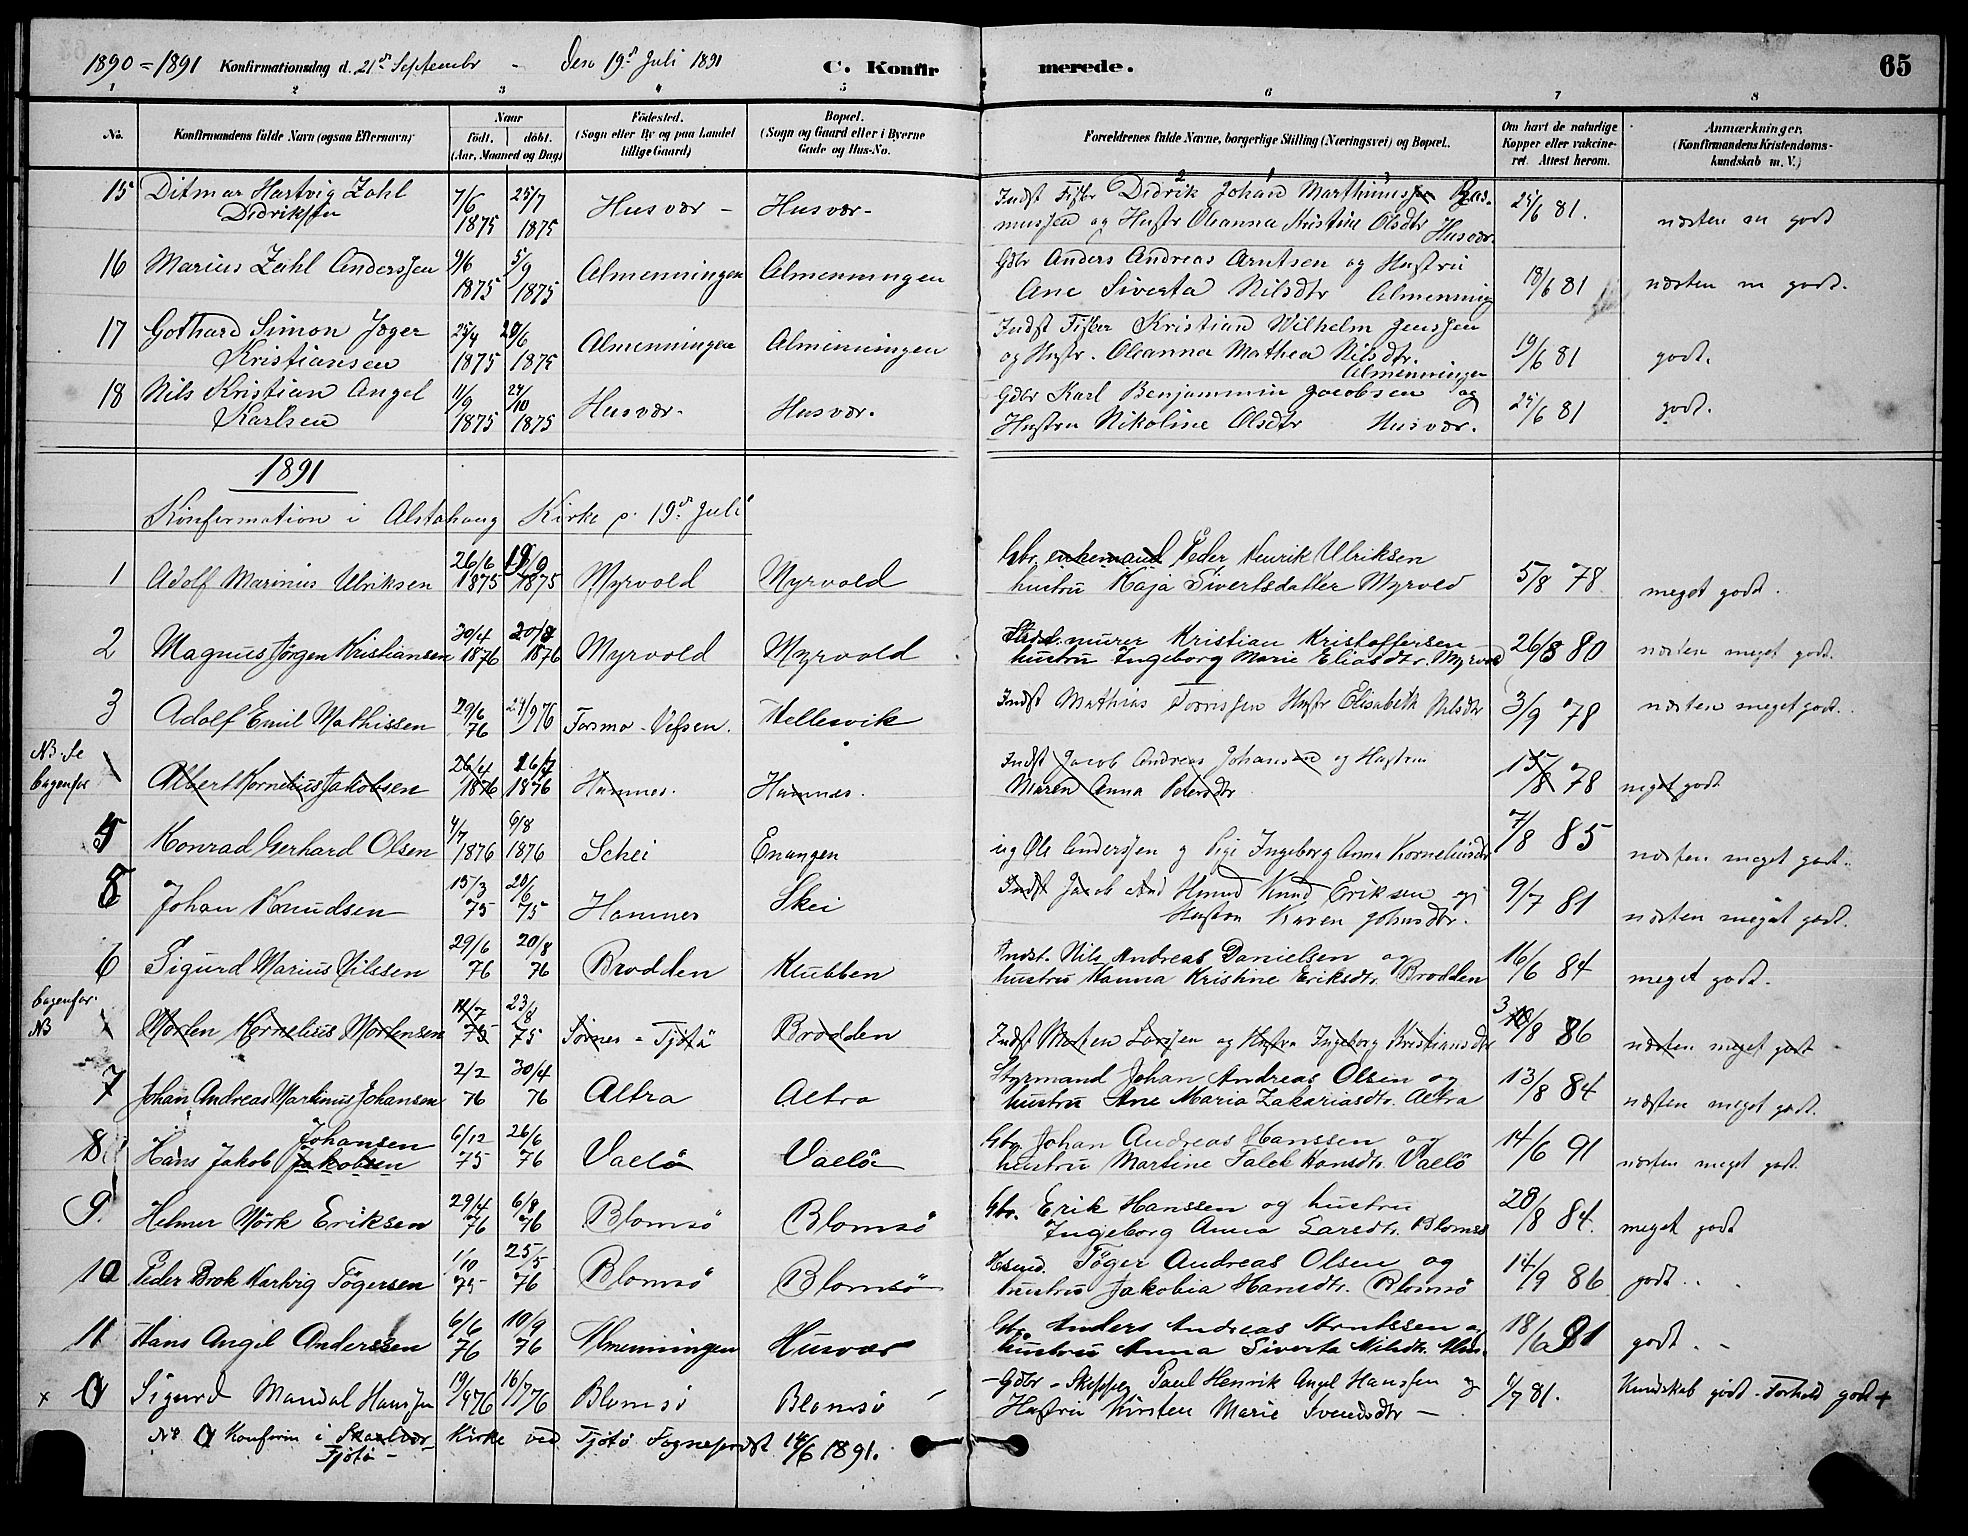 1890=1891 Konfirmationsdag d. 21de September - Den 19de Juli 1891 C. Konfirmerede. 65
1 2 3 4 5 6 7 8
No. Konfirmandens fulde Navn (ogsaa Efternavn) Naar født. døbt. (Aar, Maaned og Dag) Fødested. (Sogn eller By og paa Landet tillige Gaard) Bopæl. (Sogn og Gaard eller i Byerne Gade og Hus-No. Forældrenes fulde Navne, borgerlige Stilling (Næringsvei) og Bopæl. Om havt de naturlige Kopper eller vakcineret. Attest herom. Anmærkninger. (Konfirmandens Kristendomskundskab m. V.)
15 Ditmar Hartvig Zahl Didriksen 7/6 1875 25/7 1875 Husvær - Husvær - Indst Fisker Didrik Johan Marthinus Rasmussen og Hustr Oleanna Kristine Olsdtr Husvær. 25/6 81. næsten m godt
16 Marius Zahl Anderssen 9/6 1875 5/9 1875 Almenningen Almenningen Gdbr Anders Andreas Arntsen og Hustru Ane Siverta Nilsdtr Almenning 18/6 81 næsten m godt.
17 Gothard Simon Jæger Kristiansen 25/4 1875 20/6 1875 Almenningen Almenningen Indst Fisker Kristian Wilhelm Jenssen og Hustr. Oleanna Mathea Nilsdtr. Almenningen 19/6 81 godt.
18 Nils Kristian Angel Karlsen 11/9 1875 24/10 1875 Husvær. Husvær. Gdbr Karl Benjammin Jacobsen og Hustru Nikoline Olsdtr Husvær. 25/6 81 godt.
1891
Konfirmation i Alstahaug Kirke d. 19de Juli
1 Adolf Marinius Ulriksen 26/6 1875 19/9 1875 Myrvold Myrvold Gbr. enkemand Peder Henrik Ulriksen hustru Kaja Sivertsdatter Myrvold 5/8 78 meget godt.
2 Magnus Jørgen Kristiansen 30/4 1876 20/8 1876 Myrvold Myrvold murer Kristian Kristoffersen hustru Ingeborg Marie Eliasdtr. Myrvold 26/8 80 næsten meget godt.
3 Adolf Emil Mathissen 29/6 76 24/9 76 Forsmo - Vefsen. Hellesvik Indst Mathias Torrissen Hustr Elisabeth Nilsdtr 3/9 78 næsten meget godt.
NB. Se bagenfor Albert Kornelius Jakobsen 26/4 1876 1876 Hamnes. Hamnes. Indst Jacob Andreas Johansen og Hustru Maren Anna Petersdtr 15/8 78 meget godt
4 Konrad Gerhard Olsen 4/7 1876 6/8 1876 Schei Enangen ug Ole Anderssen og Pige Ingeborg Anna Korneliusdtr 7/8 85 næsten meget godt.
5 Johan Knudsen 15/3 75 20/6 75 Hamnes Skei Indst Jacob And Hmnd Knud Eriksen og Hustru Karen Johnsdtr. 9/7 81 næsten meget godt.
6 Sigurd Marius Nilssen 29/6 76 20/8 76 Brodden Klubben Indst. Nils Andreas Danielsen og hustru Hanna Kristine Eriksdtr. Brodden 16/6 84 meget godt.
bagenfor. NB Morten Kornelius Mortensen 11/7 75 23/8 75 Sørnes - Tjøtø Brodden Indst Morten Larssen og Hustru Ingeborg Kristiansdtr 3/8 86 næsten meget godt
7 Johan Andreas Martinus Johansen 2/2 76 30/4 76 Altra Altra Styrmand Johan Andreas Olsen og hustru Ane Maria Zakariasdtr. Altra 13/8 84 næsten meget godt.
8 Hans Jakob Jakobsen Johansen 6/12 75 26/6 76 Vallø Vallø Gbr. Johan Andreas Hanssen og hustru Martine Falch Hansdtr. Vallø 14/6 91 næsten meget godt.
9. Helmer Mørk Eriksen 29/4 76 6/8 76 Blomsø Blomsø Gbr. Erik Hanssen og hustru Ingeborg Anna Larsdtr. Blomsø 28/8 84. meget godt
10 Peder Brok Hartvig Tøgersen 1/10 75 25/5 76 Blomsø Blomsø Hsmd. Tøger Andreas Olsen og hustru Jakobia Hansdtr. Blomsø 14/9 86 godt.
11 Hans Angel Anderssen 6/6 76 10/9 76 Almenningen Husvær Gbr. Anders Andreas Arntssen og hustru Anna Siverta Nilsdtr. 18/6 81 godt. -
x 0 Sigurd Mandal Hanssen 19/4 76 16/7 76 Blomsø Blomsø - Gdbr - Skipper Paul Henrik Angel Hanssen og Hustru Kirsten Marie Svendsdtr - 1/7 81. Kundskab godt - Forhold godt +
NB 0 Konfirm i Skaalvær Tjøtø - Kirke ved Tjøtø Sogneprest 14/6 1891.